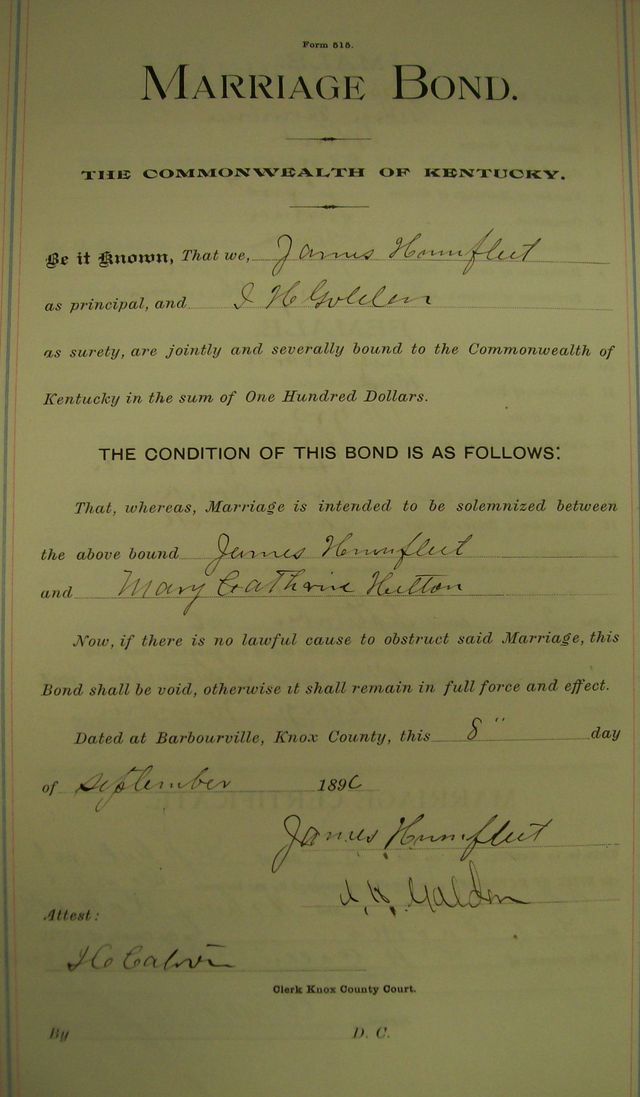 Form 515.
MARRIAGE BOND.
THE COMMONWEALTH OF KENTUCKY.
Be it Known, That we, James Hunnfleet
as principal, and J H Golden
as surety, are jointly and severally bound to the Commonwealth of
Kentucky in the sum of One Hundred Dollars.
THE CONDITION OF THIS BOND IS AS FOLLOWS:
That, whereas, Marriage is intended to be solemnized between
the above bound James Hunnfleet
and Mary Catherine Hutton
Now, if there is no lawful cause to obstruct said Marriage, this
Bond shall be void, otherwise it shall remain in full force and effect.
Dated at Barbourville, Knox County, this 8" day
of September 1896
James Hunnfleet
J. H. Golden
Attest:
Clerk Knox County Court.
By D. C.